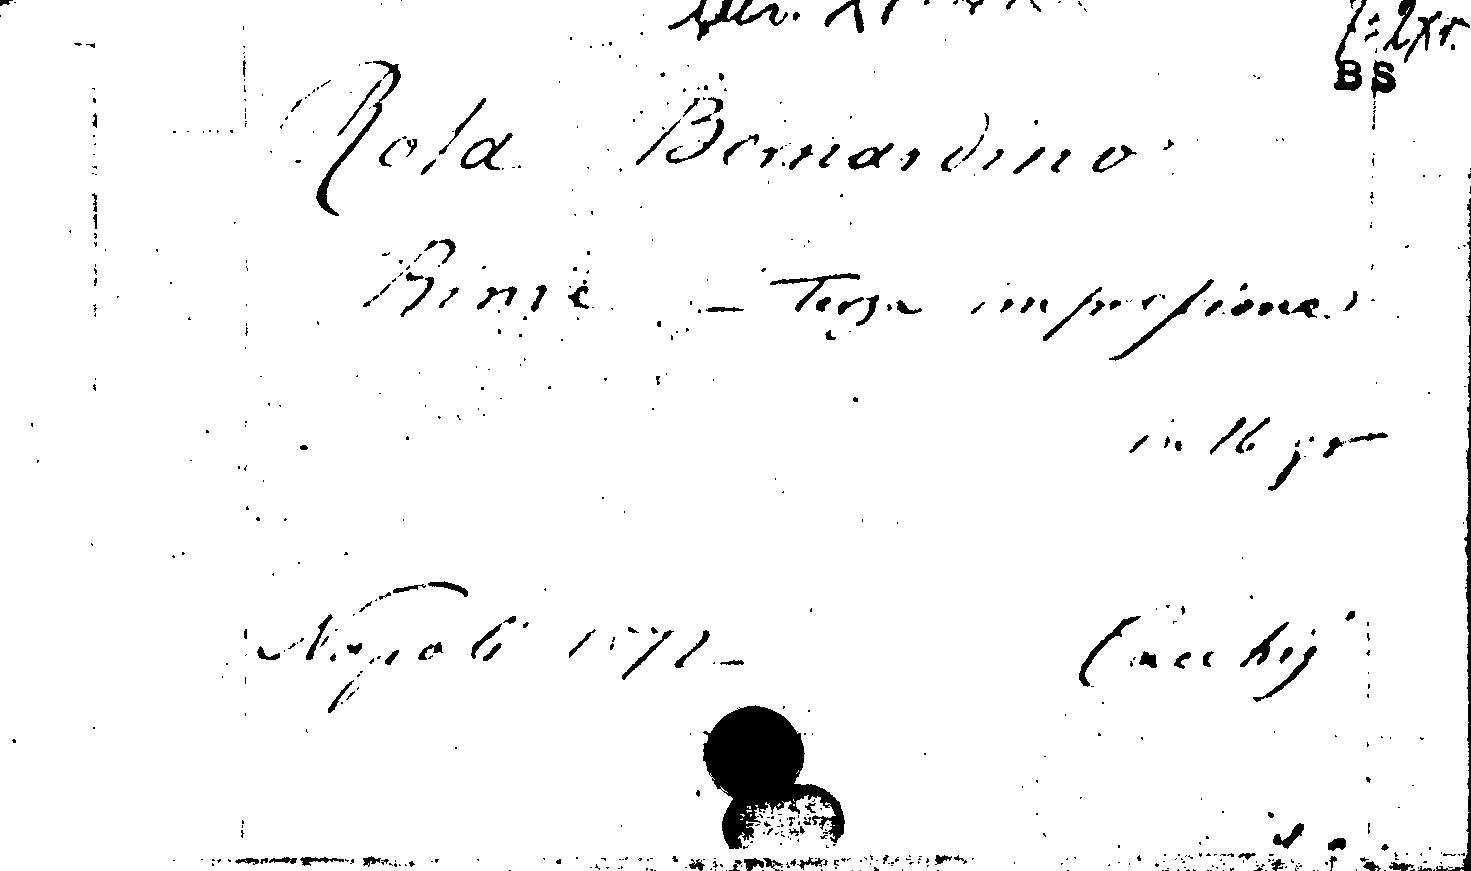 BS
Rota Bernardino
Rime – Terza impressione
in 16 gr
Napoli 1572 –
Cacchij